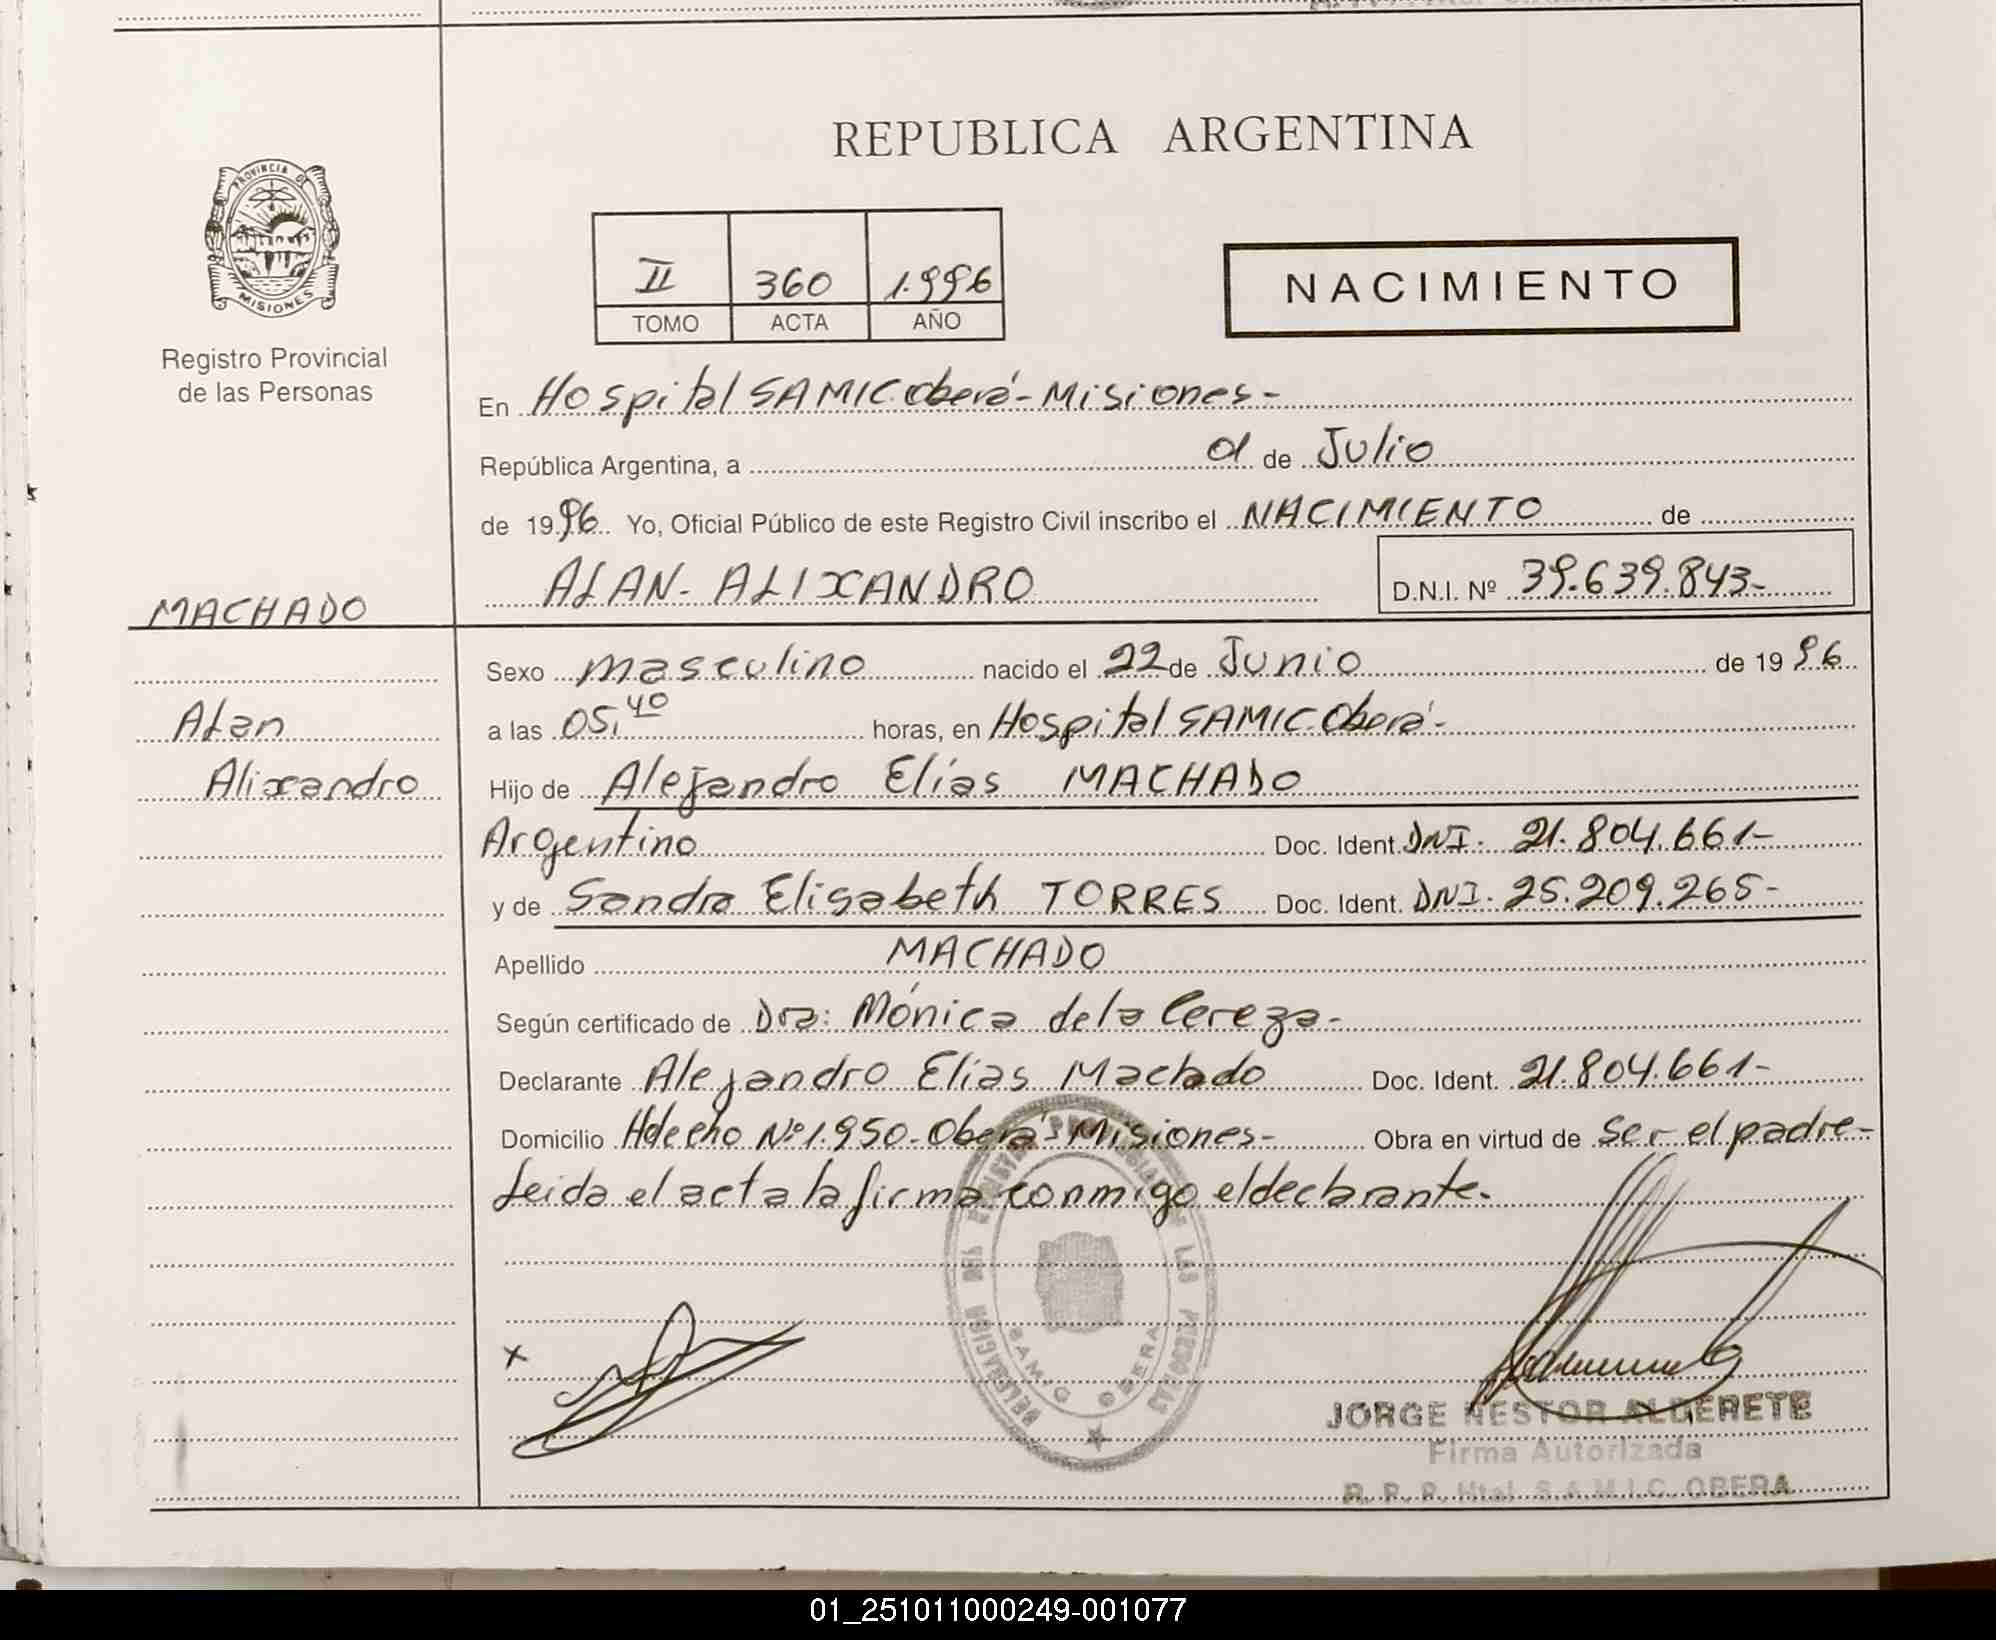 REPUBLICA ARGENTINA
PROVINCIA DE
MISIONES
Registro Provincial
de las Personas
II 360 1.996
TOMO ACTA AÑO
NACIMIENTO
En Hospital SAMIC. Oberá - Misiones -
República Argentina, a 01 de Julio
de 1996 Yo, Oficial Público de este Registro Civil inscribo el NACIMIENTO de
ALAN - ALIXANDRO D.N.I. Nº 39.639.843-
MACHADO
Alan
Alixandro
Sexo masculino nacido el 22 de Junio de 1996
a las 05,40 horas, en Hospital SAMIC. Oberá -
Hijo de Alejandro Elías MACHADO
Argentino Doc. Ident. DNI. 21.804.661-
y de Sandra Elisabeth TORRES Doc. Ident. DNI. 25.209.265-
Apellido MACHADO
Según certificado de Dra: Mónica de la Cereza -
Declarante Alejandro Elías Machado Doc. Ident. 21.804.661-
Domicilio Nº 1.950 - Oberá - Misiones - Obra en virtud de ser el padre -
Leida el acta la firma conmigo el declarante.
DELEGACION DEL REGISTRO PROVINCIAL DE LAS PERSONAS
SAMIC OBERA
x
JORGE NESTOR ALDERETE
Firma Autorizada
R. P. P. Htal. S.A.M.I.C. OBERA
01_251011000249-001077